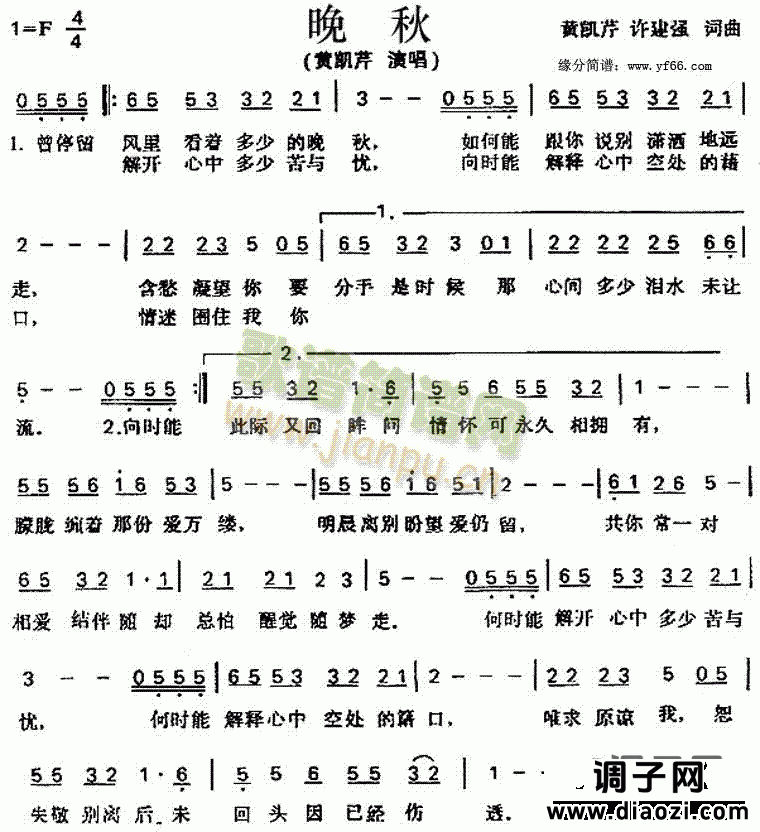 晚 秋
1=F 4/4
(黄凯芹 演唱)
黄凯芹 许建强 词曲
缘分简谱：www.yf66.com
0 5 5 5 ‖: 6 5 5 3 3 2 2 1 | 3 - - 0 5 5 5 | 6 5 5 3 3 2 2 1 |
1. 曾停留 风里 看着 多少 的晚 秋， 如何能 跟你 说别 潇洒 地远
解开 心中 多少 苦与 忧， 向时能 解释 心中 空处 的藉
1.
2 - - - | 2 2 2 3 5 0 5 | 6 5 3 2 3 0 1 | 2 2 2 2 2 5 6 6 |
走， 含愁 凝望 你 要 分手 是时 候 那 心间 多少 泪水 未让
口， 情迷 困住 我 你
2.
5 - - 0 5 5 5 :‖ 5 5 3 2 1 · 6 | 5 5 6 5 5 3 2 | 1 - - - |
流. 2.向时能 此际 又回 眸 问 情怀 可 永久 相拥 有，
5 5 5 6 1 6 5 3 | 5 - - - | 5 5 5 6 1 6 5 1 | 2 - - - | 6 1 2 6 5 - |
朦胧 缠着 那份 爱万 缕， 明晨 离别 盼望 爱仍 留， 共你 常一 对
6 5 3 2 1 · 1 | 2 1 2 1 2 3 | 5 - - 0 5 5 5 | 6 5 5 3 3 2 2 1 |
相爱 结伴 随 却 总怕 醒觉 随 梦 走. 何时能 解开 心中 多少 苦与
3 - - 0 5 5 5 | 6 5 5 3 3 2 2 1 | 2 - - - | 2 2 2 3 5 0 5 |
忧， 何时能 解释 心中 空处 的藉 口， 唯求 原谅 我， 恕
5 5 3 2 1 · 6 | 5 5 6 5 5 3 2 | 1 - -
失敬 别离 后 未 回 头 因 已经 伤 透.
歌谱简谱网
www.jianpu.cn
调子网
www.diaozi.com